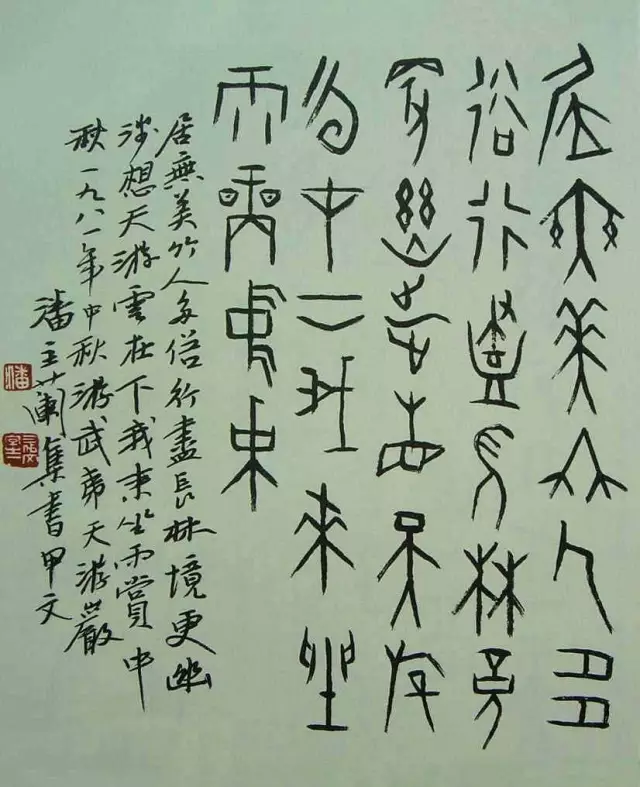 居無美竹人多
俗行盡長林境
更幽涉想天游
雲在下我來坐
雨賞中秋
居無美竹人多俗行盡長林境更幽
涉想天游雲在下我來坐雨賞中
秋一九八一年中秋游武夷天游巖
潘主蘭集書甲文
潘